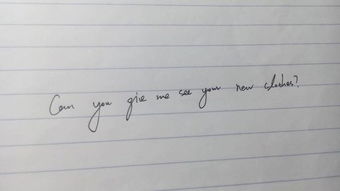 Can you give me see your new clothes?